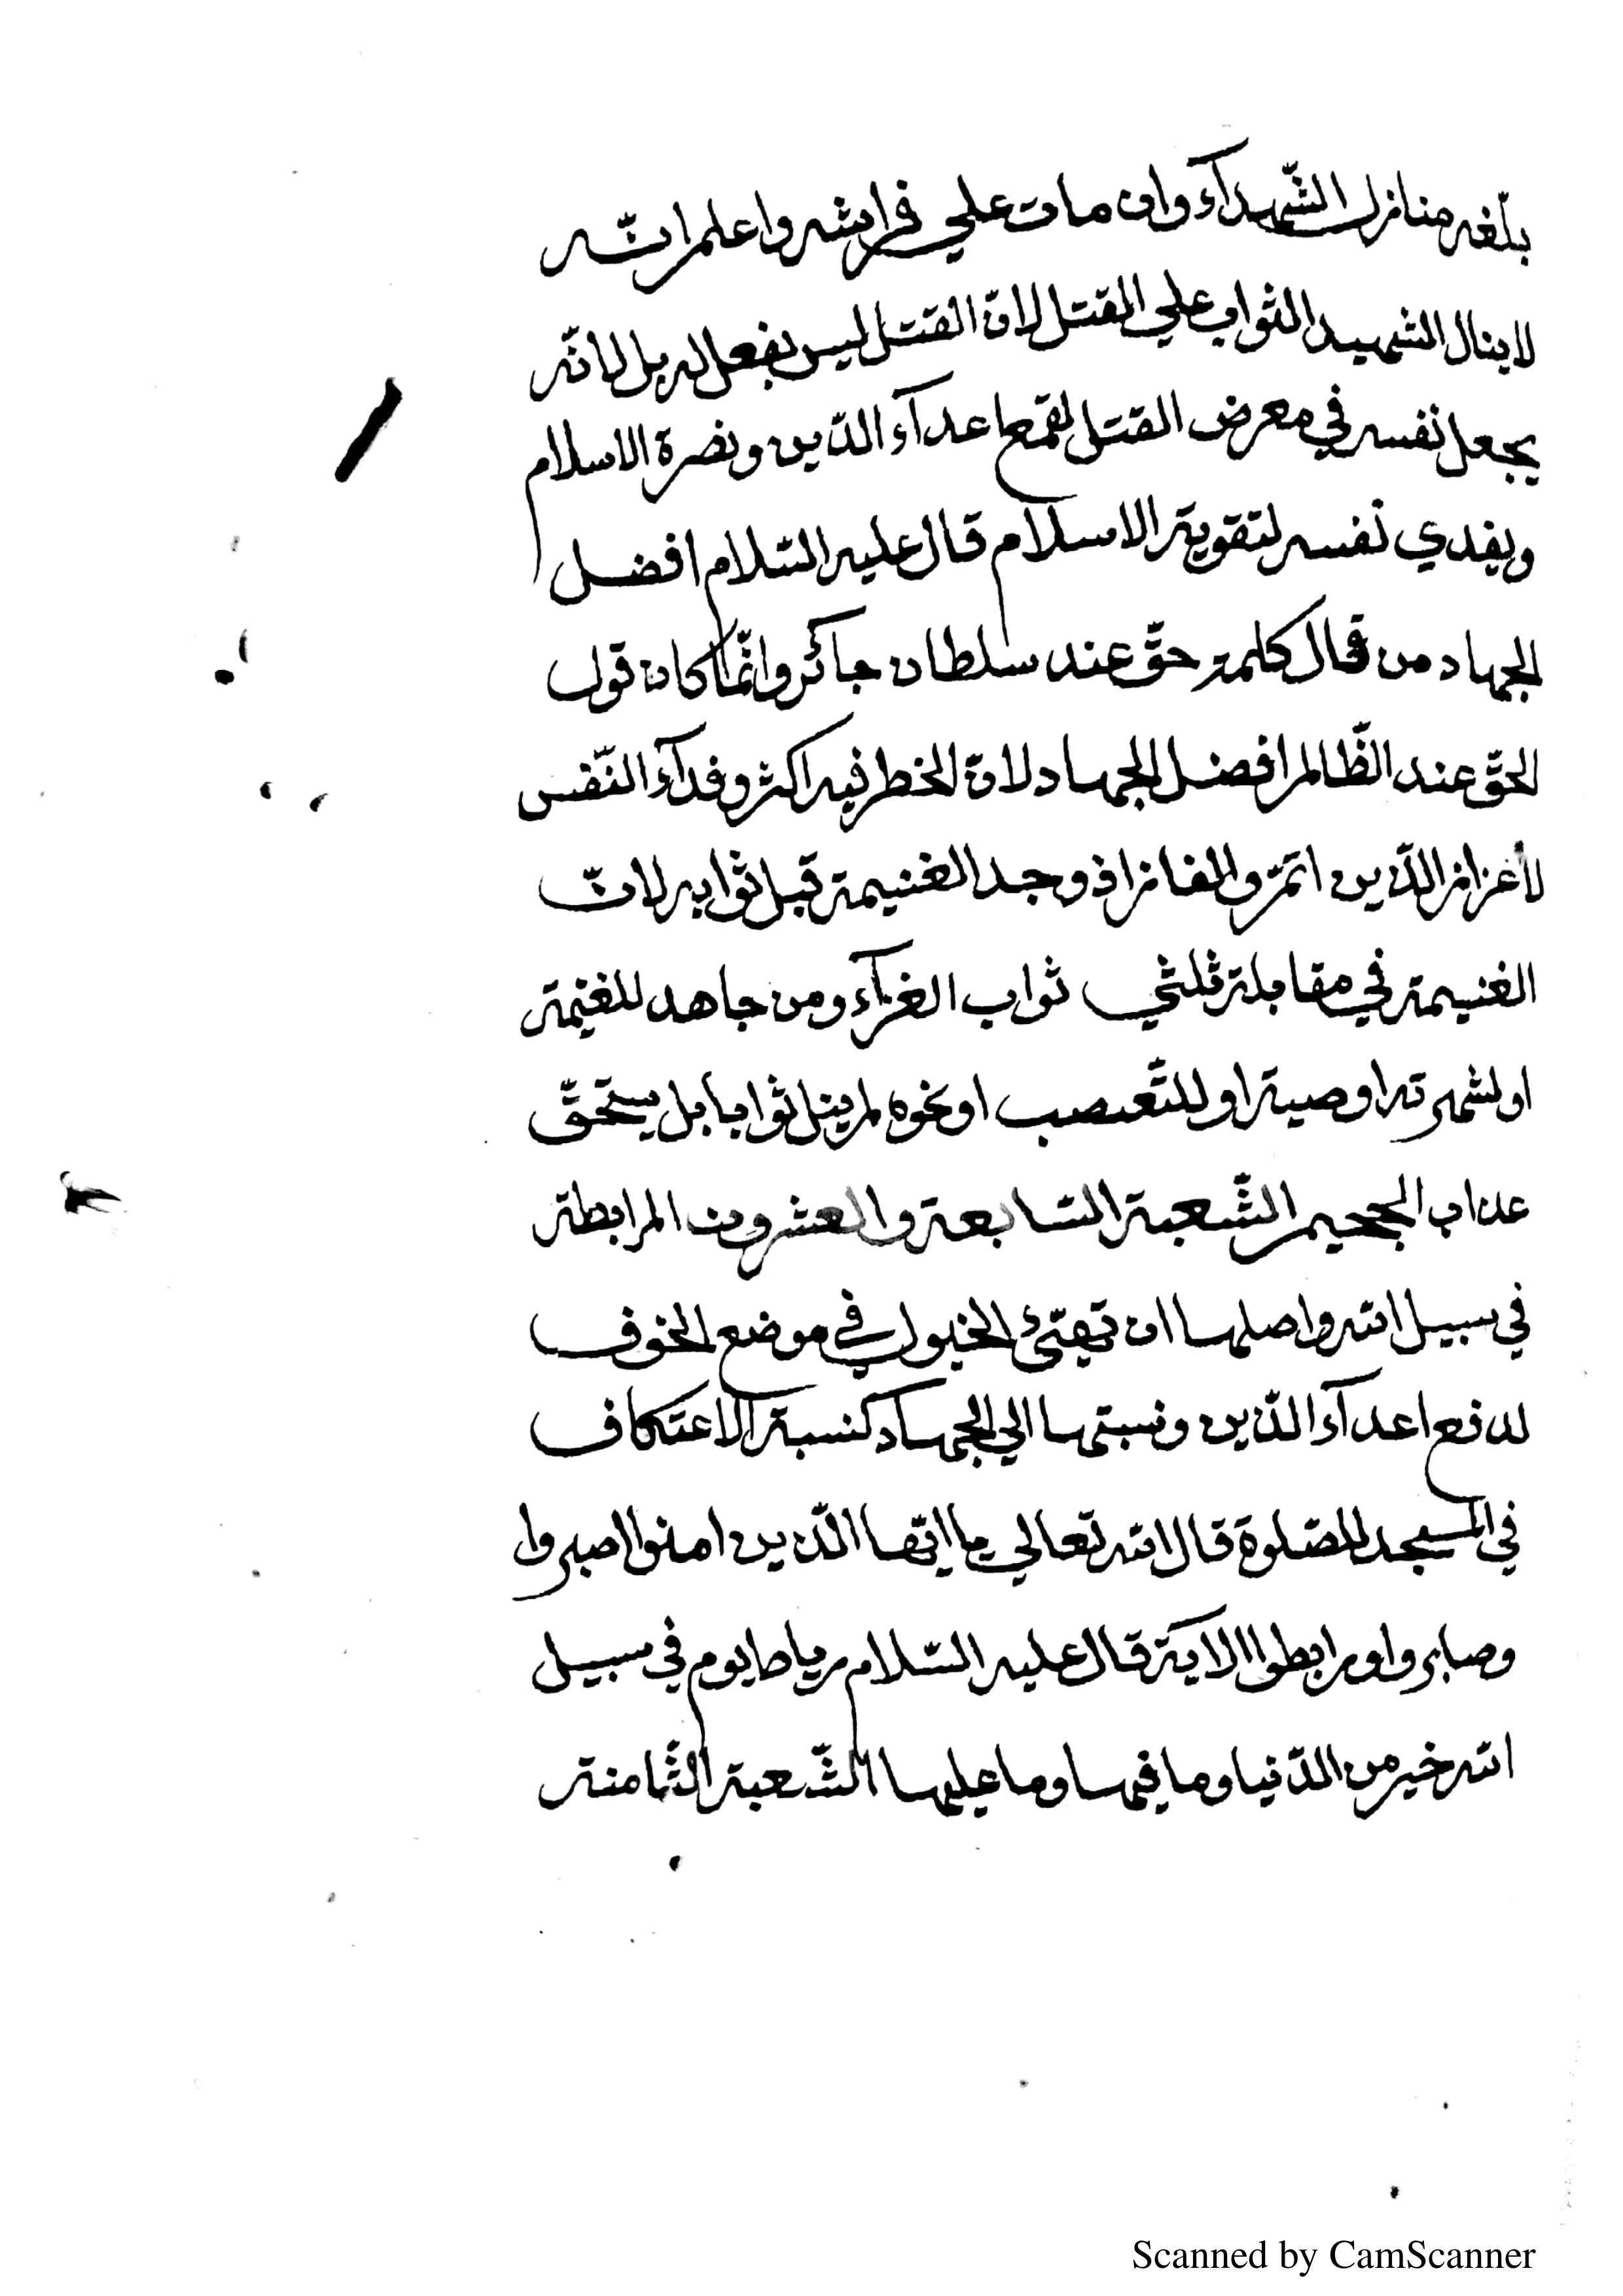 بلّغه منازل الشّهدآء وان مات علي فراشه واعلم انّه
لا ينال الشهيد الثواب علي القتل لانّ القتل ليس بفعل له بل لانّه
يجعل نفسه في معرض القتل لقمع اعدآء الدّين ونصرة الاسلام
ويفدي نفسه لتقوية الاسلام قال عليه السّلام افضل
الجهاد من قال كلمة حقّ عند سلطان جائر وانّما كان قول
الحقّ عند الظّالم افضل الجهاد لانّ الخطر فيه اكثر وفدآء النّفس
لأعزاز الدّين اتمّ والغاز اذ وجد الغنيمة قبل ثوابه لانّ
الغنيمة في مقابلة ثلثي ثواب الغزآء ومن جاهد للغنيمة
او لشهرته او صيته او للتّعصب او نحوه لم ينل ثوابا بل يستحقّ
عذاب الجحيم الشّعبة السّابعة والعشرون المرابطة
في سبيل الله واصلها ان تهيّئ الخيول في موضع الخوف
لدفع اعدآء الدّين ونسبتها الي الجهاد كنسبة الاعتكاف
في المسجد للصّلوة قال الله تعالي يا ايّها الّذين امنوا اصبروا
وصابروا ورابطوا الاية قال عليه السّلام رباط يوم في سبيل
الله خير من الدّنيا وما فيها وما عليها الشّعبة الثّامنة
Scanned by CamScanner